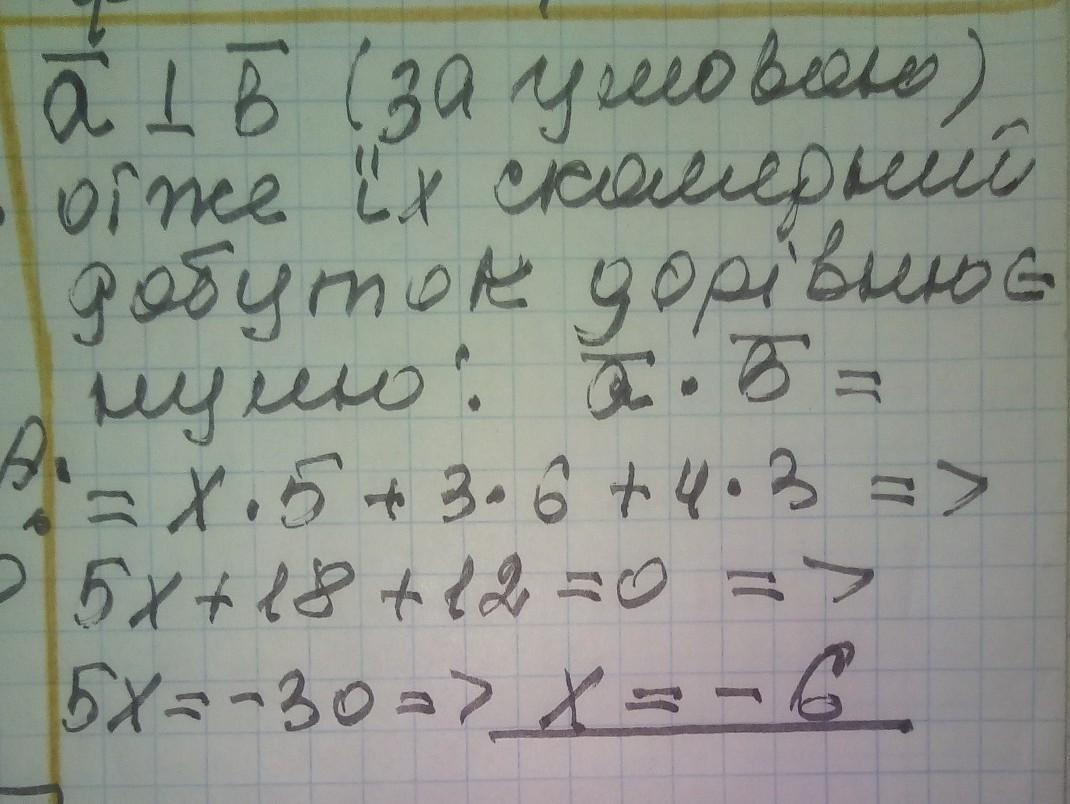 a̅ ⊥ b̅ (за умовою)
отже їх скалярний
добуток дорівнює
нулю: a̅ · b̅ =
= x · 5 + 3 · 6 + 4 · 3 =>
5x + 18 + 12 = 0 =>
5x = -30 => x = - 6